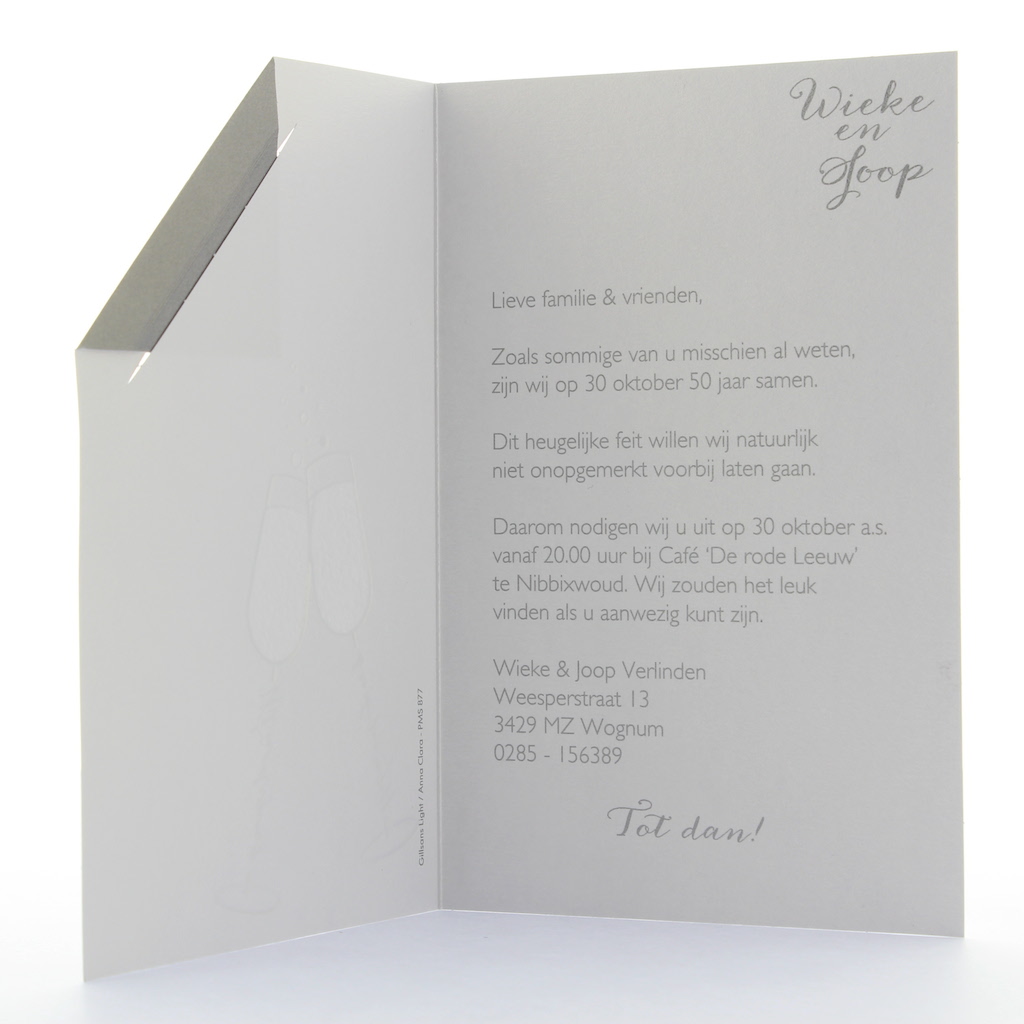 Wieke
en
Joop
Lieve familie & vrienden,
Zoals sommige van u misschien al weten,
zijn wij op 30 oktober 50 jaar samen.
Dit heugelijke feit willen wij natuurlijk
niet onopgemerkt voorbij laten gaan.
Daarom nodigen wij u uit op 30 oktober a.s.
vanaf 20.00 uur bij Café ‘De rode Leeuw’
te Nibbixwoud. Wij zouden het leuk
vinden als u aanwezig kunt zijn.
Wieke & Joop Verlinden
Weesperstraat 13
3429 MZ Wognum
0285 - 156389
Tot dan!
Gillsans Light / Anna Clara - PMS 877